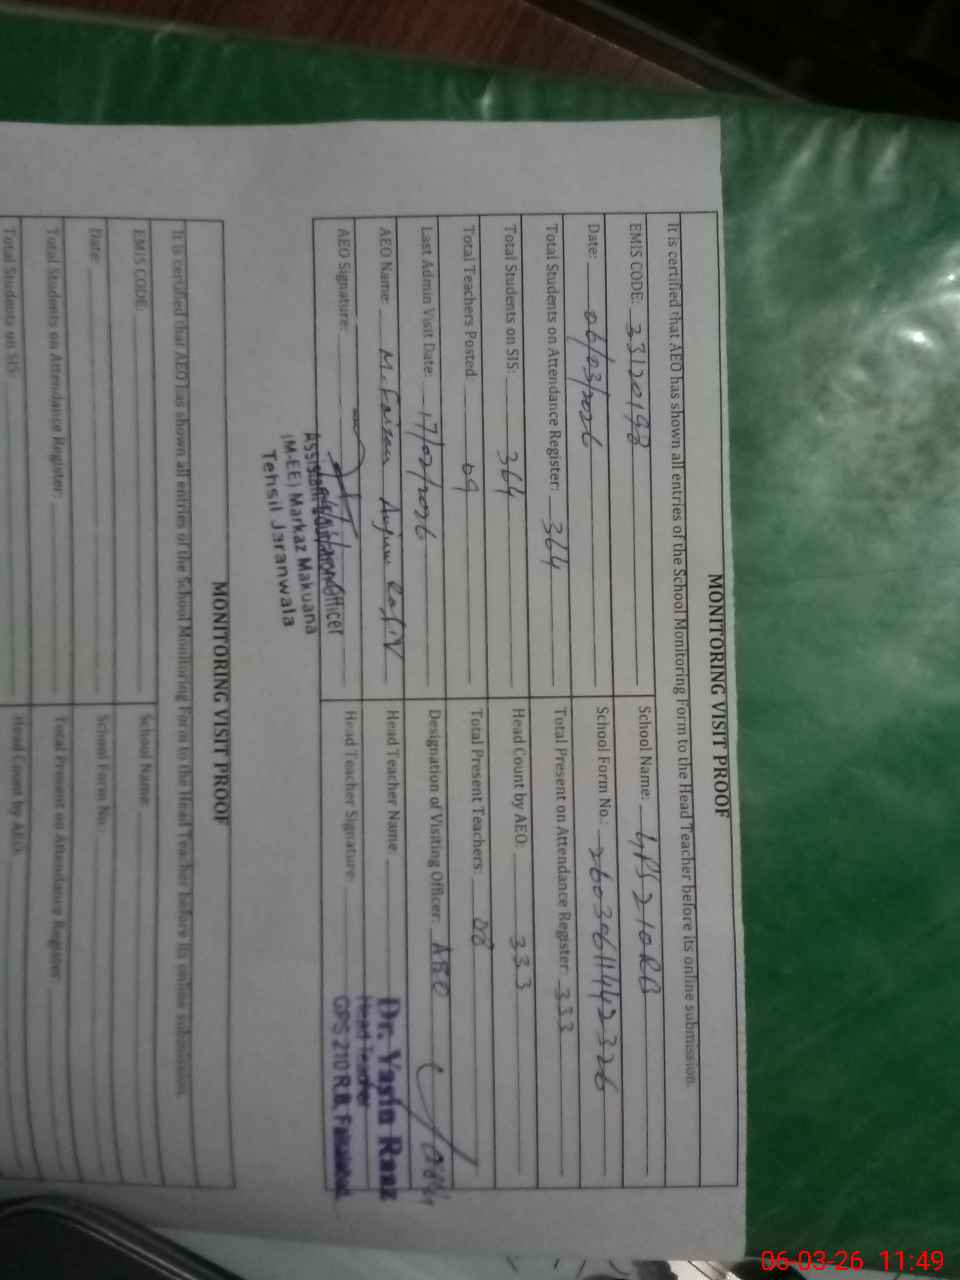 MONITORING VISIT PROOF
It is certified that AEO has shown all entries of the School Monitoring Form to the Head Teacher before its online submission.
EMIS CODE: 33120198 School Name: GPS 210RB
Date: 06/03/2026 School Form No.: 26030611442326
Total Students on Attendance Register: 364 Total Present on Attendance Register: 333
Total Students on SIS: 364 Head Count by AEO: 333
Total Teachers Posted 09 Total Present Teachers: 08
Last Admin Visit Date: 17/02/2026 Designation of Visiting Officer: AEO
AEO Name: M. Head Teacher Name:
AEO Signature: Head Teacher Signature:
Dr. Yasin Raaz
Head Teacher
GPS 210 R.B. Faisalabad
Assistant Education Officer
(M-EE) Markaz Makuana
Tehsil Jaranwala
MONITORING VISIT PROOF
It is certified that AEO has shown all entries of the School Monitoring Form to the Head Teacher before its online submission.
EMIS CODE: School Name:
Date: School Form No.:
Total Students on Attendance Register: Total Present on Attendance Register:
Total Students on SIS: Head Count by AEO:
06-03-26 11:49